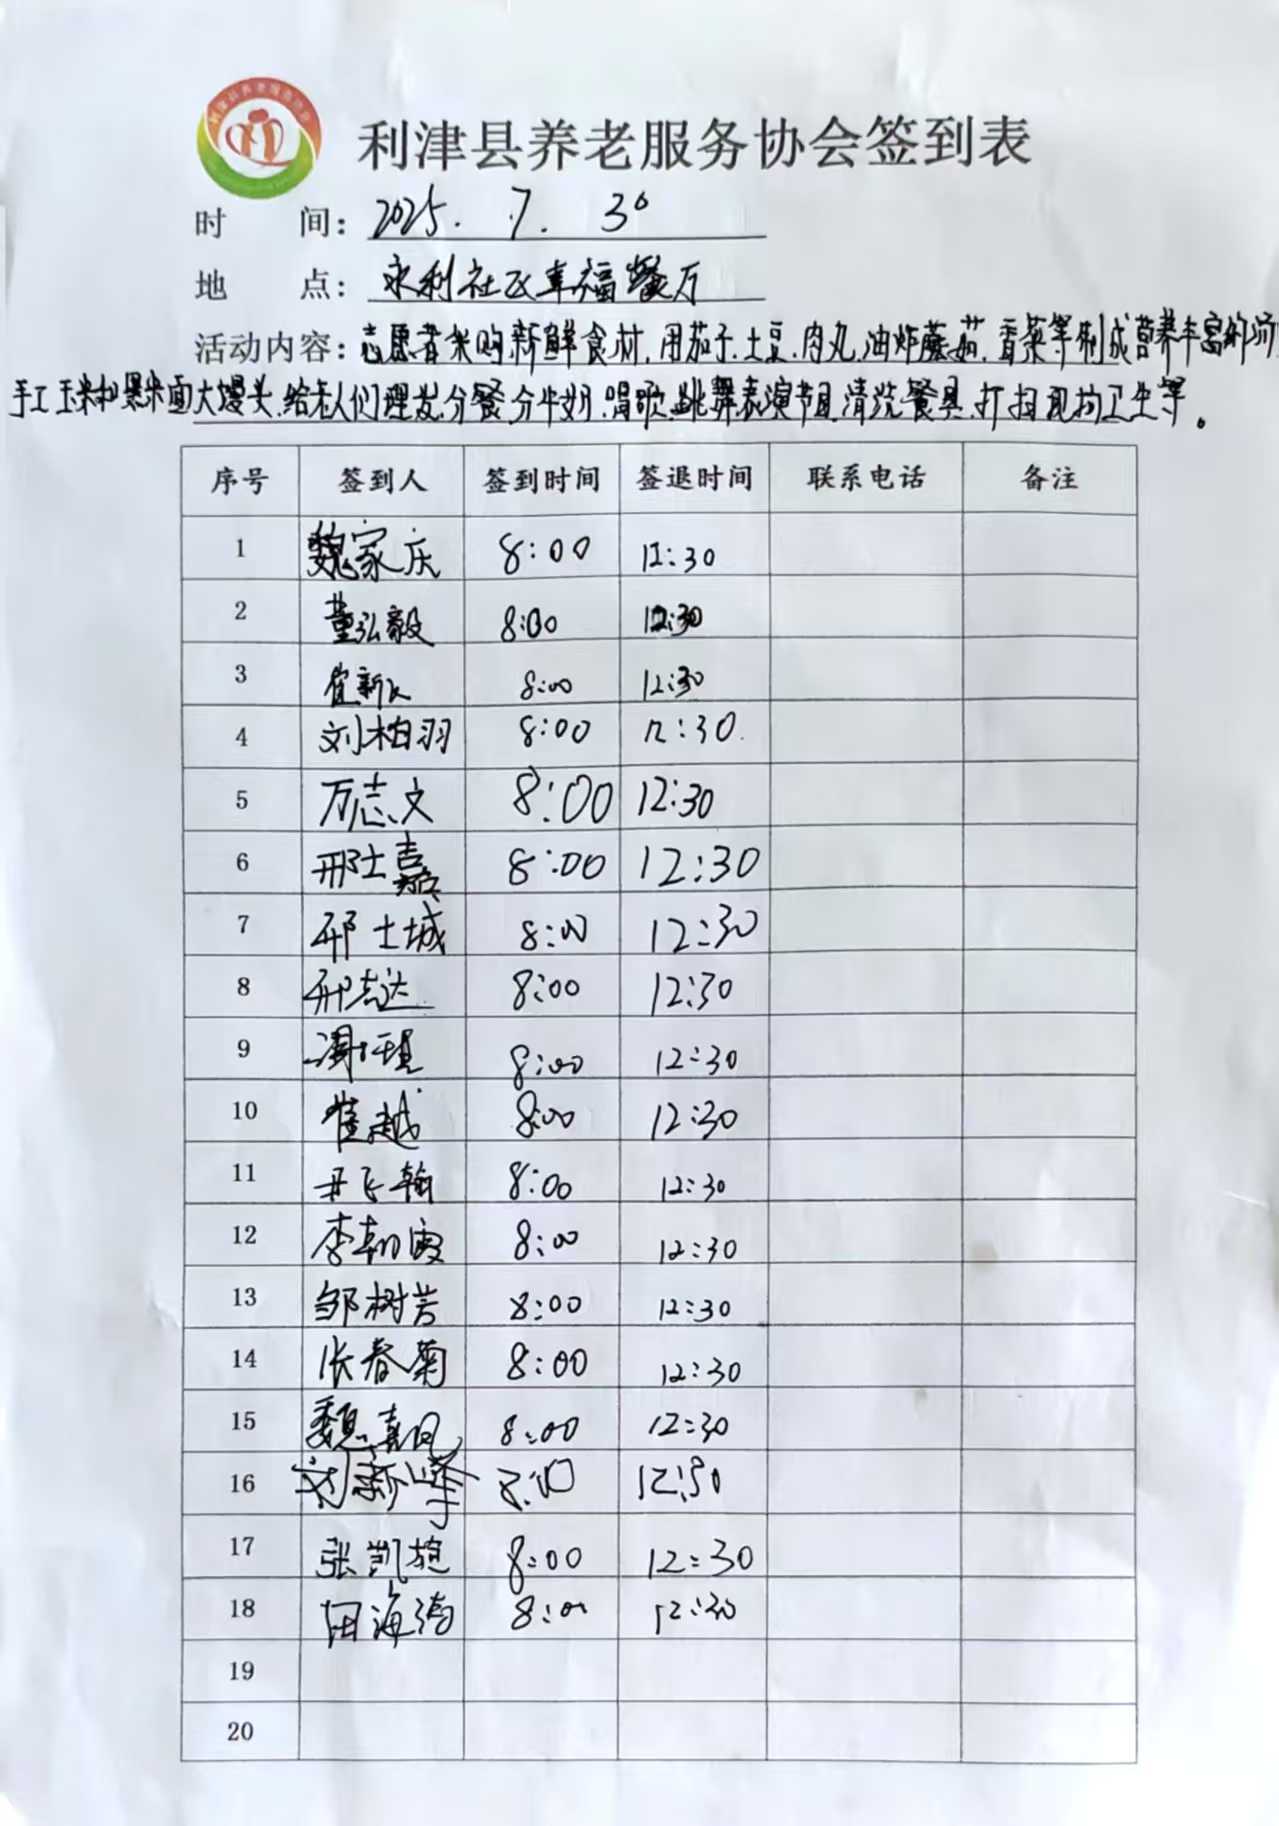 利津县养老服务协会签到表
时 间: 2025. 7. 30
地 点: 永利社区幸福餐厅
活动内容: 志愿者采购新鲜食材,用茄子.土豆.肉丸.油炸蘑菇.香菜等制成营养丰富的汤
手工玉米和黑米面大馒头,给老人们理发,分餐,分牛奶.唱歌.跳舞表演节目,清洗餐具,打扫现场卫生等。
序号 签到人 签到时间 签退时间 联系电话 备注
1 魏家庆 8:00 12:30
2 董弘毅 8:00 12:30
3 崔新 8:00 12:30
4 刘柏羽 8:00 12:30
5 万志文 8:00 12:30
6 邢士嘉 8:00 12:30
7 邢士城 8:00 12:30
8 邢志达 8:00 12:30
9 8:00 12:30
10 崔越 8:00 12:30
11 飞翰 8:00 12:30
12 李朝霞 8:00 12:30
13 邹树芳 8:00 12:30
14 张春菊 8:00 12:30
15 魏嘉 8:00 12:30
16 刘新峰 8:00 12:30
17 张凯旋 8:00 12:30
18 田海涛 8:00 12:30
19
20